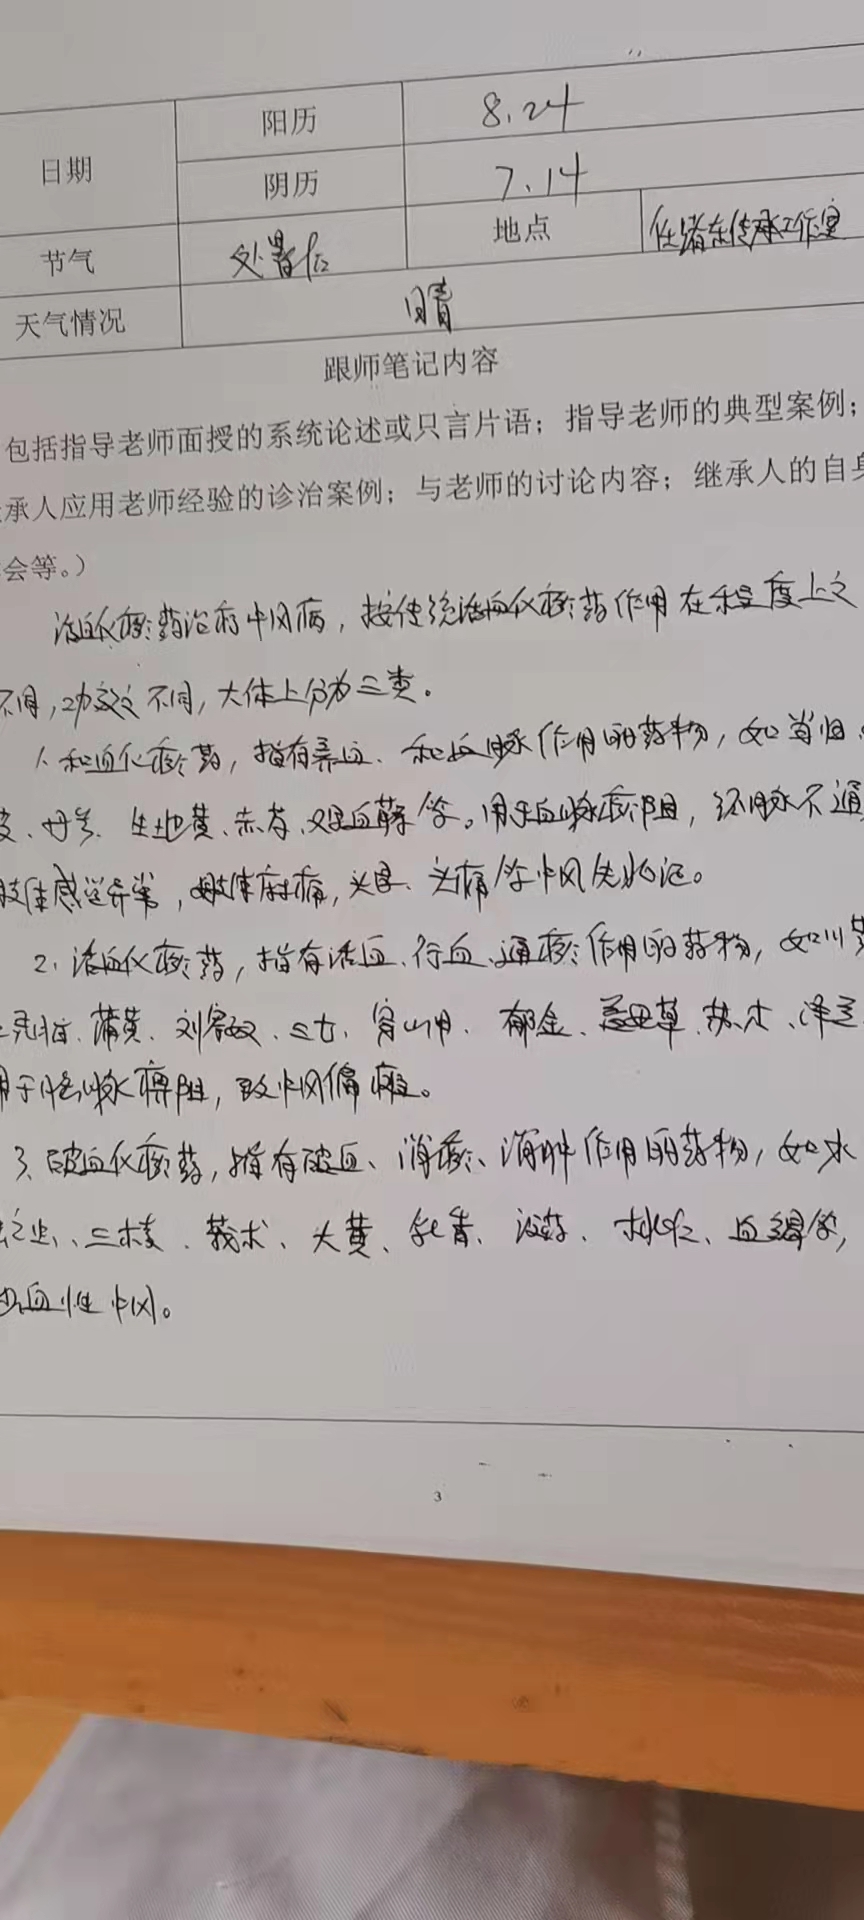 日期 阳历 8.24
阴历 7.14
节气 处暑后 地点 任绪东传承工作室
天气情况 晴
跟师笔记内容
包括指导老师面授的系统论述或只言片语；指导老师的典型案例；
承人应用老师经验的诊治案例；与老师的讨论内容；继承人的自身
会等。）
活血化瘀药治疗中风病，按传统活血化瘀药作用在程度上之
不同，功效之不同，大体上分为三类。
1、和血化瘀药，指有养血、和血脉作用的药物，如当归、
皮、丹参、生地黄、赤芍、鸡血藤等。用于血脉瘀阻，络脉不通
肢体感觉异常，肢体麻痛，头晕、头痛等中风先兆证。
2、活血化瘀药，指有活血、行血、通瘀作用的药物，如川芎
灵脂、蒲黄、刘寄奴、三七、穿山甲、郁金、益母草、苏木、泽兰
用于脑脉痹阻，致中风偏瘫。
3、破血化瘀药，指有破血、消瘀、消肿作用的药物，如水
虫、三棱、莪术、大黄、乳香、没药、桃仁、血竭等，
出血性中风。
3